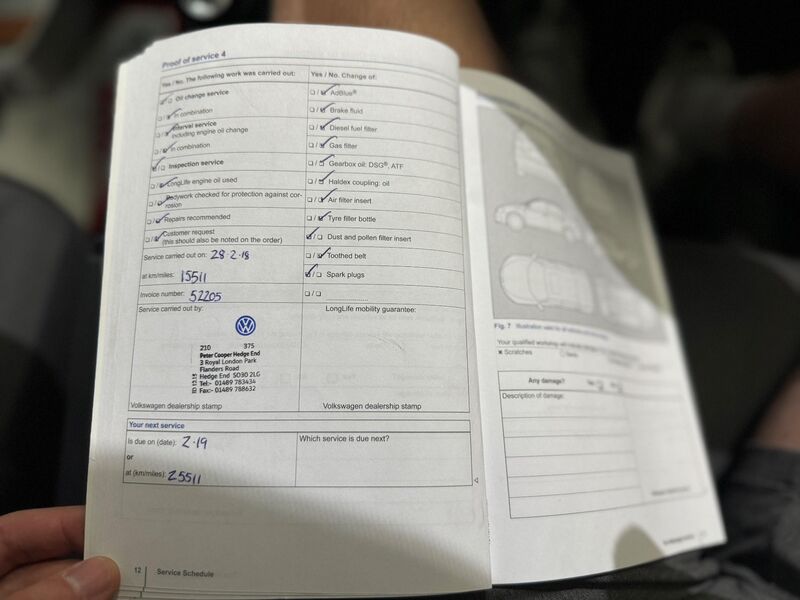 Proof of service 4
Yes / No. The following work was carried out:
Oil change service
In combination
Interval service
including engine oil change
In combination
Inspection service
LongLife engine oil used
Bodywork checked for protection against cor-
rosion
Repairs recommended
Customer request
(this should also be noted on the order)
Service carried out on: 28·2·18
at km/miles: 15511
Invoice number: 52205
Service carried out by:
210 375
Peter Cooper Hedge End
3 Royal London Park
Flanders Road
Hedge End SO30 2LG
Tel:- 01489 783434
Fax:- 01489 788632
Volkswagen dealership stamp
Yes / No. Change of:
AdBlue®
Brake fluid
Diesel fuel filter
Gas filter
Gearbox oil: DSG®, ATF
Haldex coupling: oil
Air filter insert
Tyre filler bottle
Dust and pollen filter insert
Toothed belt
Spark plugs
LongLife mobility guarantee:
Volkswagen dealership stamp
Your next service
Is due on (date): 2·19
or
at (km/miles): 25511
Which service is due next?
12 Service Schedule
Fig. 7
Your qualified workshop
Scratches
Any damage?
Description of damage: